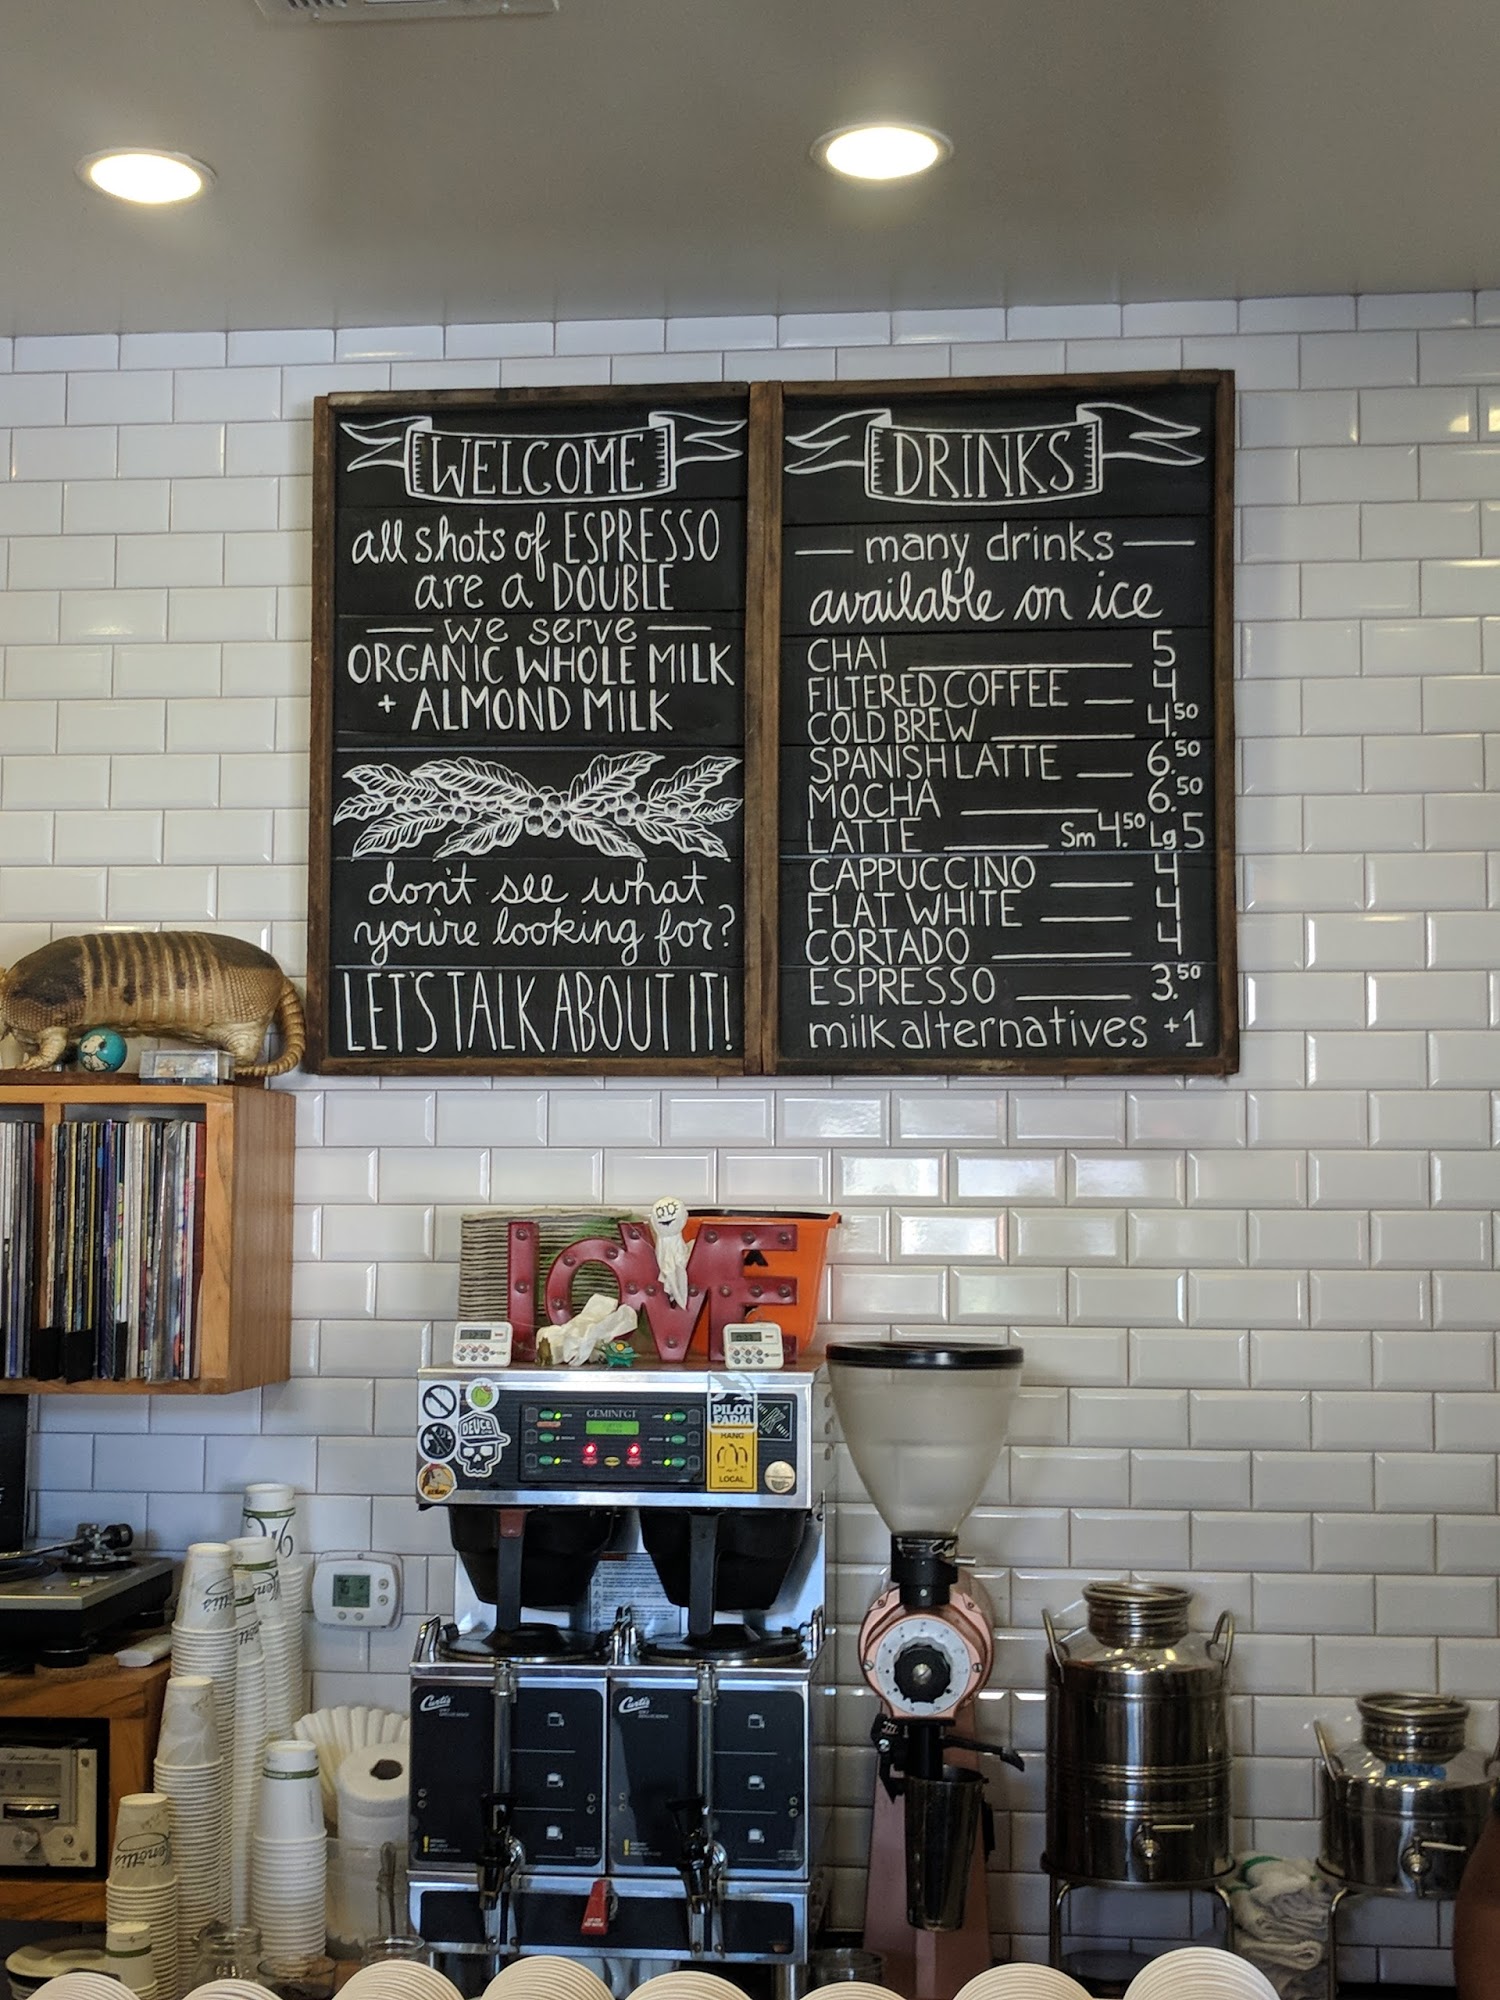 WELCOME
all shots of ESPRESSO
are a DOUBLE
we serve
ORGANIC WHOLE MILK
+ ALMOND MILK
don't see what
you're looking for?
LET'S TALK ABOUT IT!
DRINKS
many drinks
available on ice
CHAI 5
FILTERED COFFEE 4
COLD BREW 4.50
SPANISH LATTE 6.50
MOCHA 6.50
LATTE Sm 4.50 Lg 5
CAPPUCCINO 4
FLAT WHITE 4
CORTADO 4
ESPRESSO 3.50
milk alternatives +1
LOVE
GEMINI GT
DEUCE
PILOT
FARM
HANG
LOCAL
Curtis
Curtis
Menotti's